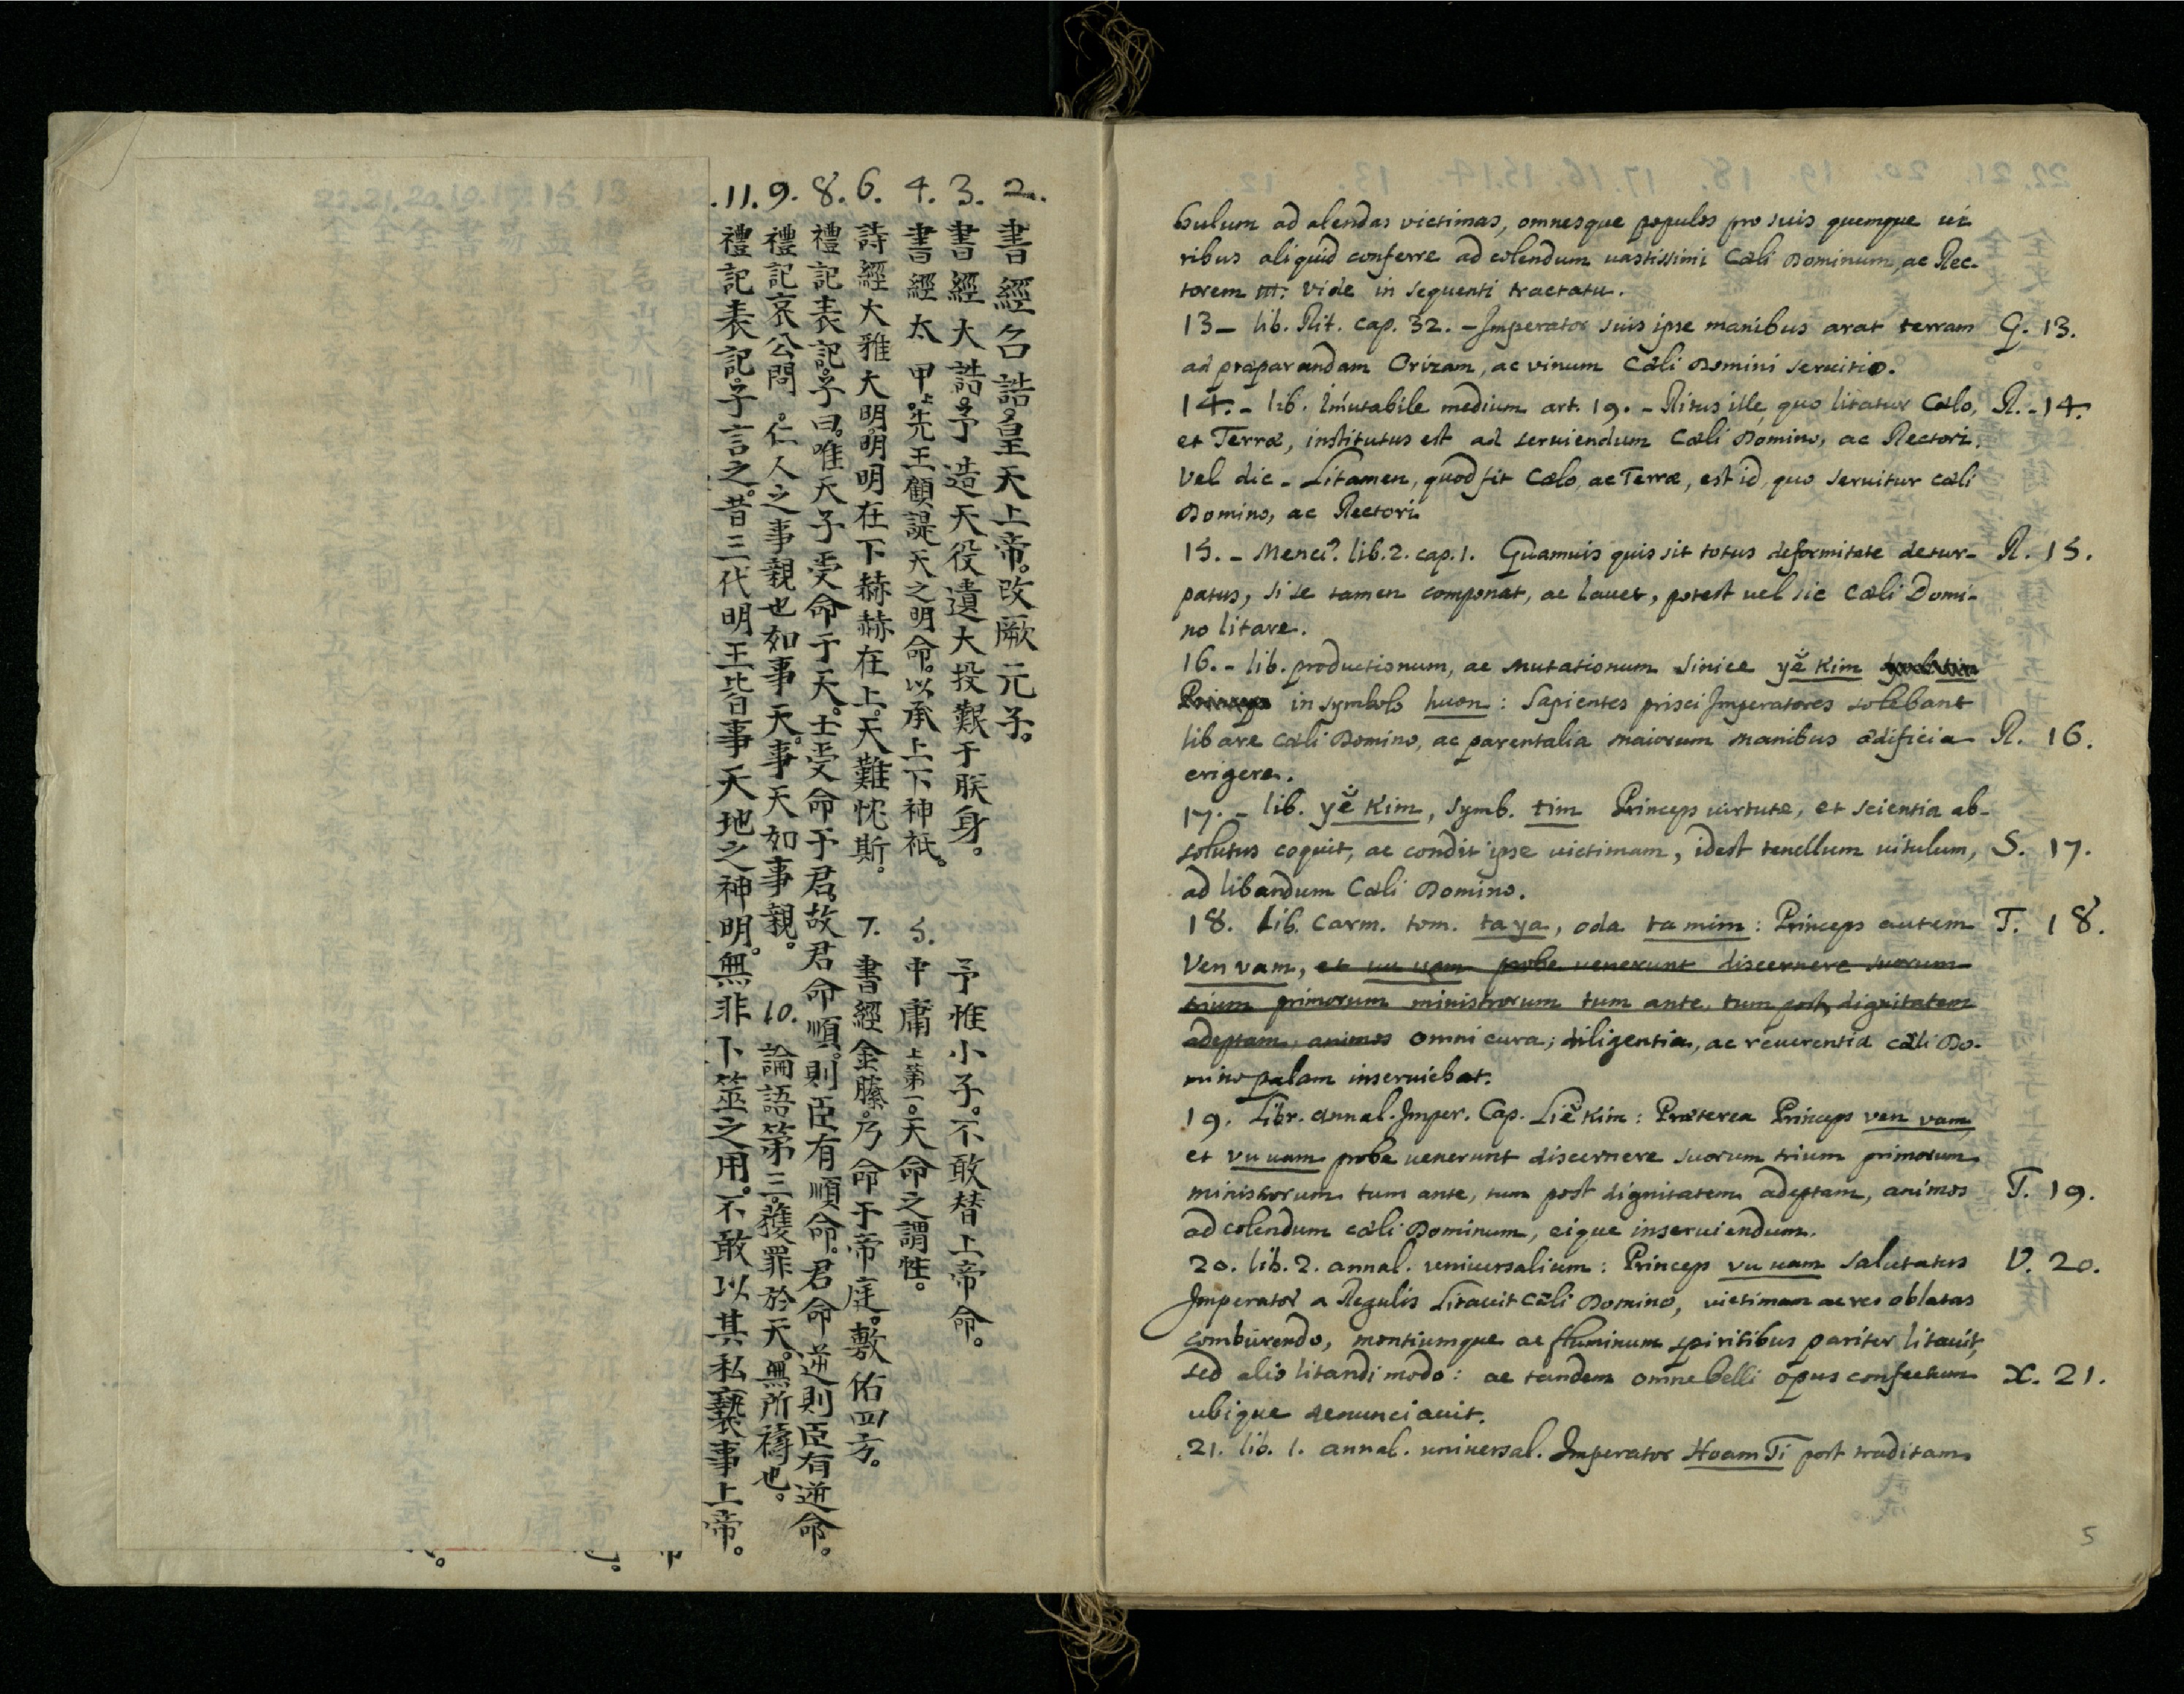 2. 書經召誥。皇天上帝。改厥元子。
3. 書經大誥。予造天役遺大投艱于朕身。予惟小子。不敢替上帝命。
4. 書經太甲上。先王顧諟天之明命。以承上下神祇。
5. 中庸上第一。天命之謂性。
6. 詩經大雅大明。明明在下赫赫在上。天難忱斯。
7. 書經金縢。乃命于帝庭。敷佑四方。
8. 禮記表記。子曰。唯天子受命于天。士受命于君。故君命順。則臣有順命。君命逆則臣有逆命。
9. 禮記哀公問。仁人之事親也如事天。事天如事親。
10. 論語第三。獲罪於天。無所禱也。
11. 禮記表記。子言之。昔三代明王皆事天地之神明。無非卜筮之用。不敢以其私褻事上帝。
bulum ad alendas victimas, omnesque populos pro suis quemque vi-
ribus aliquid conferre ad colendum vastissimi Cæli Dominum, ac Rec-
torem III: vide in sequenti tractatu.
13 – lib. Rit. cap. 32. – Imperator suis ipse manibus arat terram G. 13.
ad præparandam Orizam, ac vinum Cæli Domini servitio.
14. – lib. Imutabile medium art. 19. – Ritus ille, quo litatur Cælo, R. – 14.
et Terræ, institutus est ad serviendum Cæli Domino, ac Rectori.
Vel dic – Litamen, quod fit Cælo, ac Terræ, est id, quo servitur cæli
Domino, ac Rectori
15. – Menci. lib. 2. cap. 1. Quamuis quis sit totus deformitate detur- R. 15.
patus, si se tamen componat, ac lavet, potest vel sic Cæli Domi-
no litare.
16. – lib. productionum, ac mutationum sinice yĕ Kim
in symbolo huon: Sapientes prisci Imperatores solebant
libare Cæli Domino, ac parentalia maiorum manibus ædificia R. 16.
erigere.
17. – lib. yĕ Kim, symb. tim Princeps virtute, et scientia ab-
solutus coquit, ac condit ipse victimam, idest tenellum vitulum, S. 17.
ad libandum Cæli Domino.
18. Lib. Carm. tom. ta ya, oda ta mim: Princeps autem T. 18.
Ven vam, et vu vam probe venerunt discernere suorum
trium primorum ministrorum tum ante, tum post, dignitatem
adeptam, animos omni cura, diligentia, ac reverentia cæli Do-
mino palam inserviebat.
19. Libr. annal. Imper. Cap. Liĕ Kim: Præterea Princeps ven vam,
et vu uam probe venerunt discernere suorum trium primorum
ministrorum tum ante, tum post dignitatem adeptam, animos T. 19.
ad colendum cæli Dominum, eique inserviendum.
20. lib. 2. annal. universalium: Princeps vu uam salutatus V. 20.
Imperator a Regulis Litavit Cæli Domino, victimam ac res oblatas
comburendo, montiumque ac fluminum spiritibus pariter litavit,
sed alio litandi modo: ac tandem omne belli opus confectum X. 21.
ubique denunciavit.
21. lib. 1. annal. universal. Imperator Hoam Ti post traditam
5